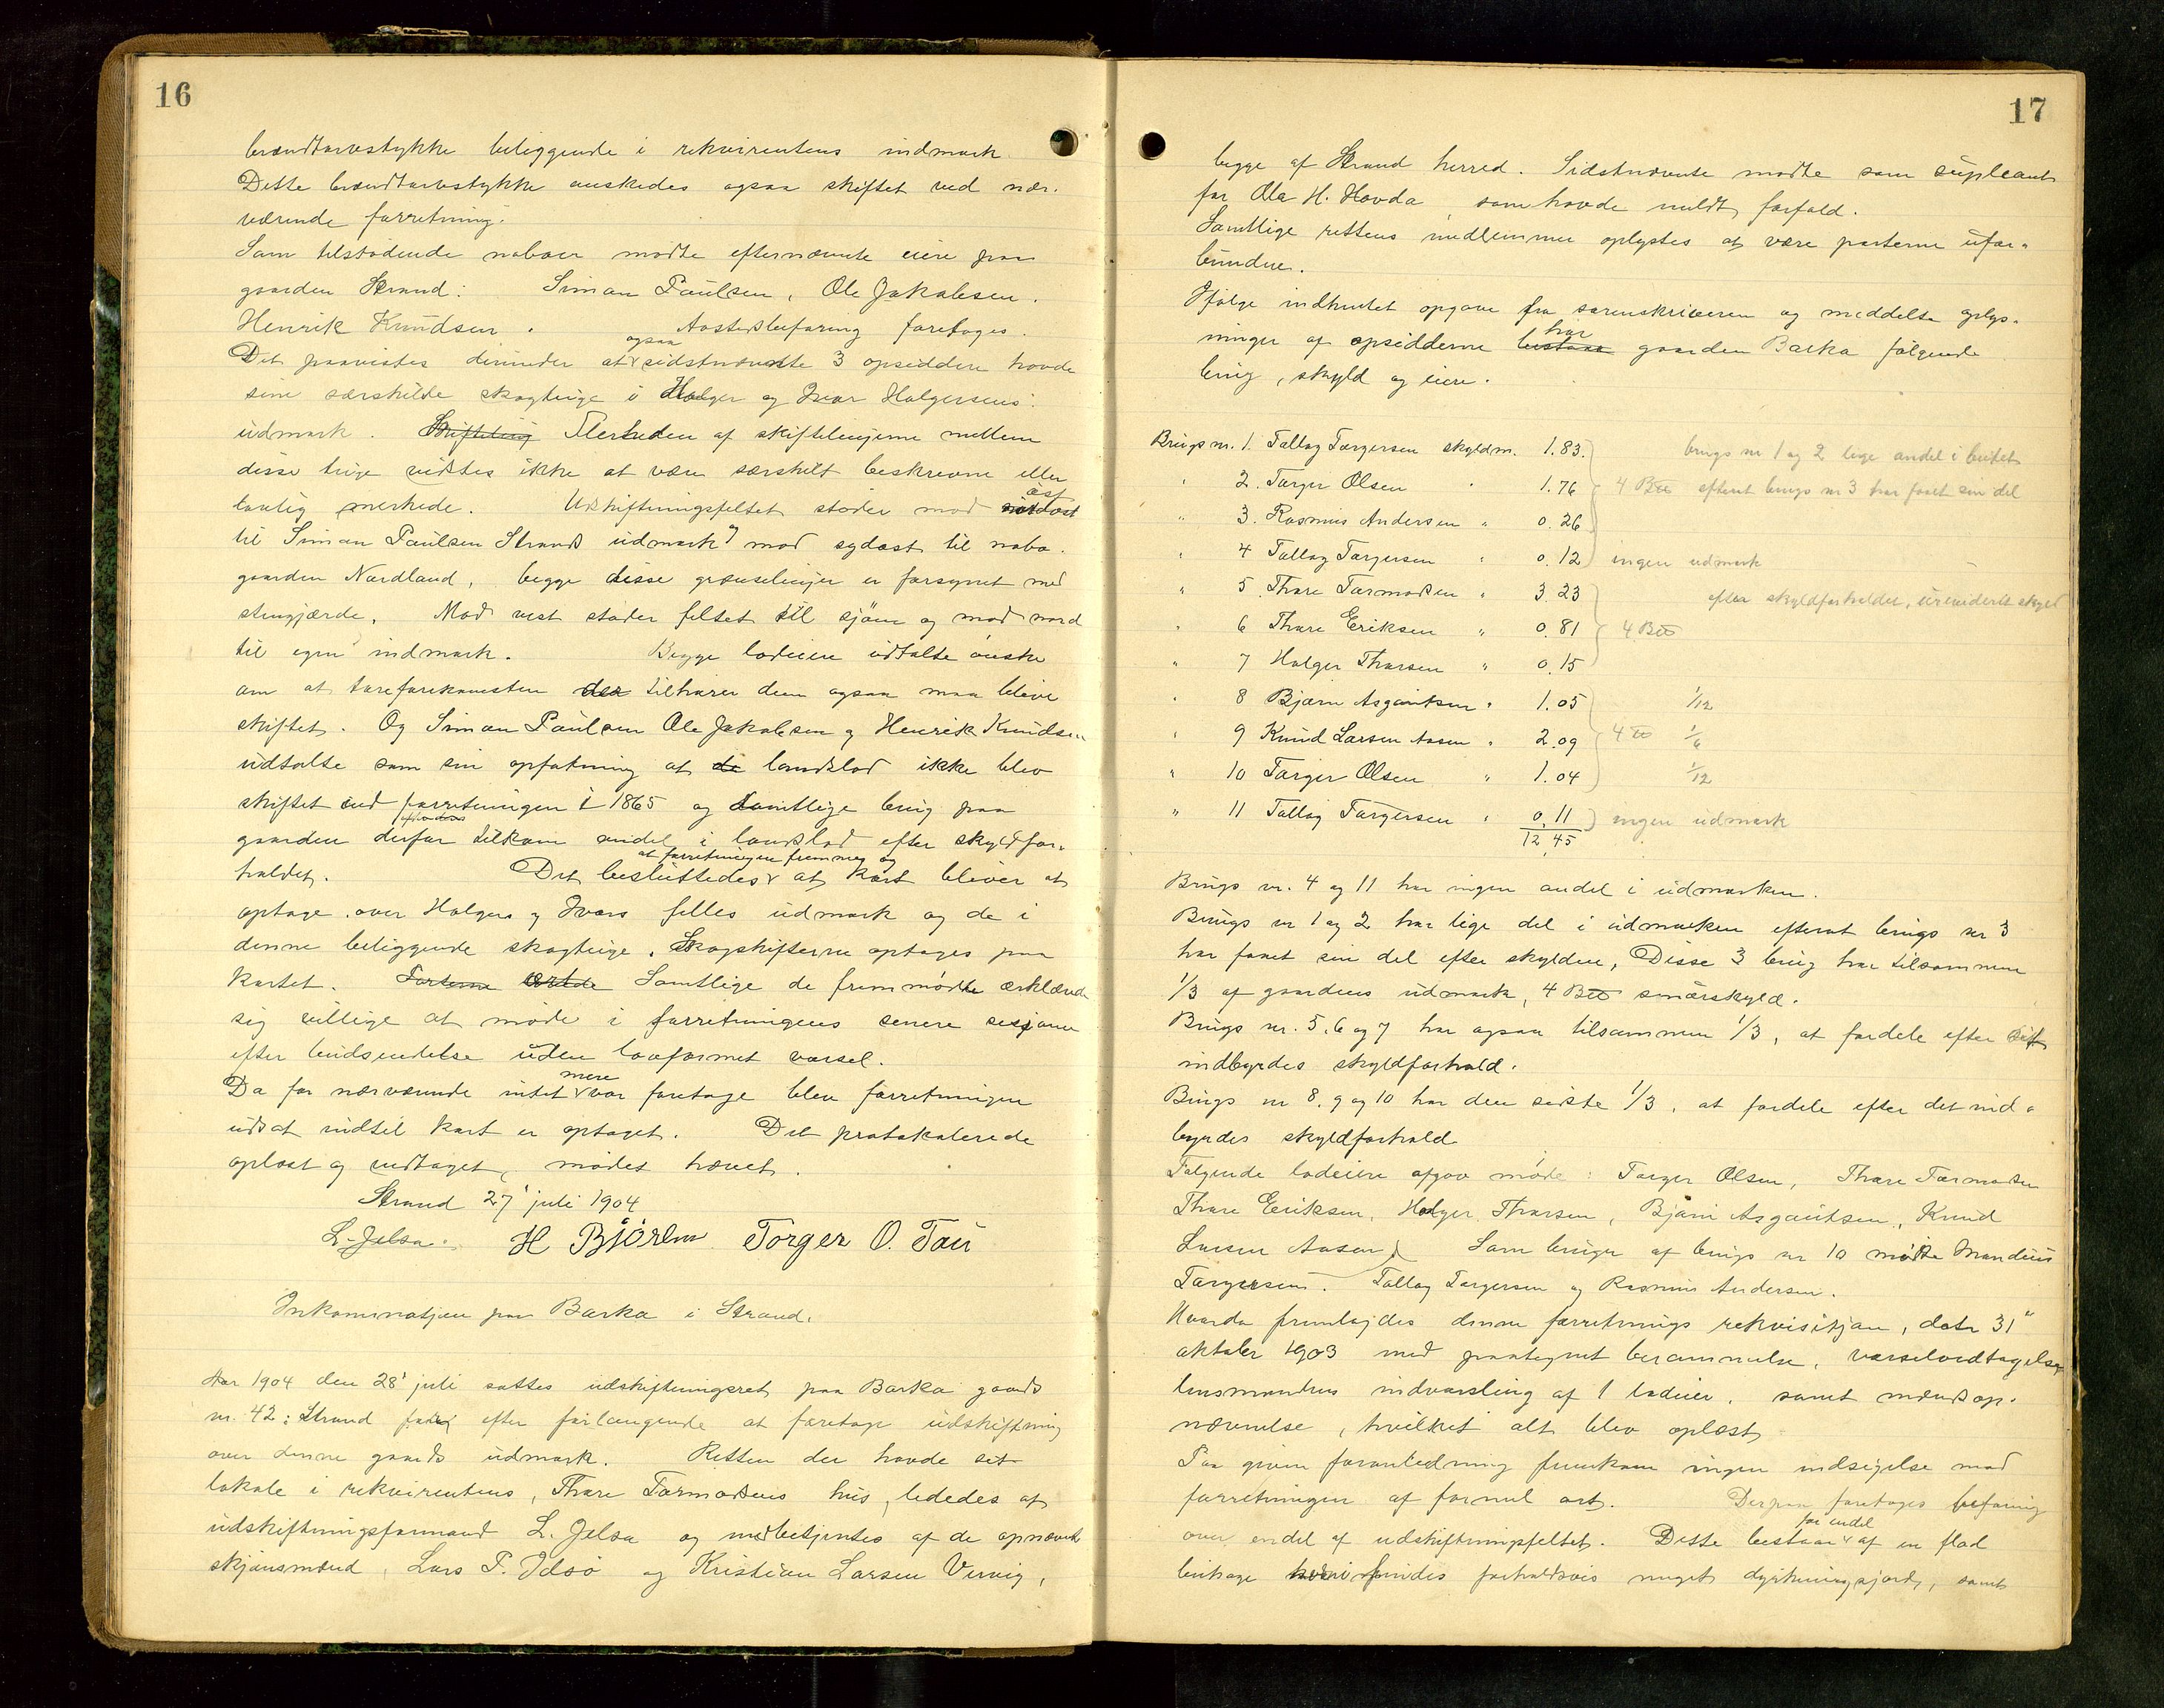 16
brændtorvstykke beliggende i rekvirentens indmark.
Dette brændtorvstykke ønskedes ogsaa skiftet ved nær-
værende forretning.
Som tilstødende naboer mødte efternævnte eiere paa
gaarden Strand: Simon Paulsen, Ole Jakobsen.
Henrik Knudsen. Aastedsbefaring foretoges.
ogsaa
Det paavistes derunder at sidstnævnte 3 opsiddere havde
sine særskilde skogteige i Holger og Ivar Holgersens
udmark. Skifteling Flerheden af skiftelinjerne mellem
disse teige vidstes ikke at være særskilt beskrevne eller
øst
lovlig merkede. Udskiftningsfeltet støder mod nordost
til Simon Paulsen Strands udmark, mod sydøst til nabo-
gaarden Nordland, begge disse grænselinjer er forsynet med
stengjærde. Mod vest støder feltet til sjøen og mod nord
til egen indmark. Begge lodeiere udtalte ønske
om at tareforekomsten der tilhører dem ogsaa maa blive
skiftet. Og Simon Paulsen Ole Jakobsen og Henrik Knudsen
udtalte som sin opfatning at de landslod ikke blev
skiftet ved forretningen i 1865 og samtlige brug paa
gaarden derfor tilkom andel i landslod efter skyldfor-
at forretningen fremmes og
holdet. Det besluttedes at kart bliver at
optage over Holgers og Ivars felles udmark og de i
denne beliggende skogteige. Skogskifterne optages paa
kartet. Parterne ærkl Samtlige de fremmødte erklærede
sig villige at møde i forretningens senere sesjoner
efter budsendelse uden lovformet varsel.
mere
Da for nærværende intet var foretage blev forretningen
udsat indtil kart er optaget. Det protokolerede
oplæst og vedtaget, mødet hævet.
Strand 27' juli 1904
L. Jelsa. H Björhn Torger O. Tau
Inkaminatjon paa Barka i Strand.
Aar 1904 den 28' juli sattes udskiftningsret paa Barka gaards
nr. 42 i Strand for efter forlangende at foretage udskiftning
over denne gaards udmark. Retten der havde sit
lokale i rekvirentens, Thore Tormodsens hus, lededes af
udskiftningsformand L. Jelsa og medbetjentes af de opnævnte
skjønsmænd, Lars P. Idsø og Kristian Larsen Vervig,
17
begge af Strand herred. Sidstnævnte mødte som supleant
for Ola H. Hovda, som havde meldt forfald.
Samtlige rettens medlemmer oplystes at være parterne ufor-
bundne.
Ifølge indhentet opgave fra sorenskriveren og meddelte oplys-
har
ninger af opsidderne bestaar gaarden Barka følgende
brug, skyld og eiere.
Brugs nr. 1. Tollag Torgersen skyldm. 1.83. brugs nr 1 og 2 lige andel i beitet
" 2. Torger Olsen " 1.76 4 Btt efterat brugs nr 3 har faaet sin del
" 3. Rasmus Andersen " 0.26
" 4 Tollag Torgersen " 0.12 ingen udmark
" 5 Thore Tormodsen " 3.23 efter skyldforholdet, urevideret skyld
" 6 Thore Eriksen " 0.81 4 Btt
" 7 Holger Thorsen " 0.15
" 8 Bjørn Asgautsen " 1.05 1/12
" 9 Knud Larsen Aasen " 2.09 4 tt 1/6
" 10 Torger Olsen " 1.04 1/12
" 11 Tollag Torgersen " 0.11 ingen udmark
12,45
Brugs nr. 4 og 11 har ingen andel i udmarken.
Brugs nr 1 og 2 har lige del i udmarken efterat brugs nr 3
har faaet sin del efter skylden, Disse 3 brug har tilsammen
1/3 af gaardens udmark, 4 Btt smørskyld.
Brugs nr. 5, 6 og 7 har ogsaa tilsammen 1/3, at fordele efter sit
indbyrdes skyldforhold.
Brugs nr 8. 9 og 10 har den sidste 1/3, at fordele efter det ind-
byrdes skyldforhold
Følgende lodeiere afgav møde: Torger Olsen, Thore Tormodsen
Thore Eriksen, Holger Thorsen, Bjørn Asgautsen, Knud
Larsen Aasen, Som bruger af brugs nr 10 mødte Mandius
Torgersen. Tollag Torgersen og Rasmus Andersen.
Hvorda fremlagdes denne forretnings rekvisisjon, dat. 31"
oktober 1903 med paategnet berammelse, varselvedtagelse
lensmandens indvarsling af 1 lodeier, samt mændsop-
nævnelse, hvilket alt blev oplæst
Paa given foranledning fremkom ingen indsigelse mod
forretningen af formel art. Derpaa foretoges befaring
for endel
over endel af udskiftningsfeltet. Dette bestaar af en flad
beitehage hvori findes forholdsvis meget dyrkningsjord, samt